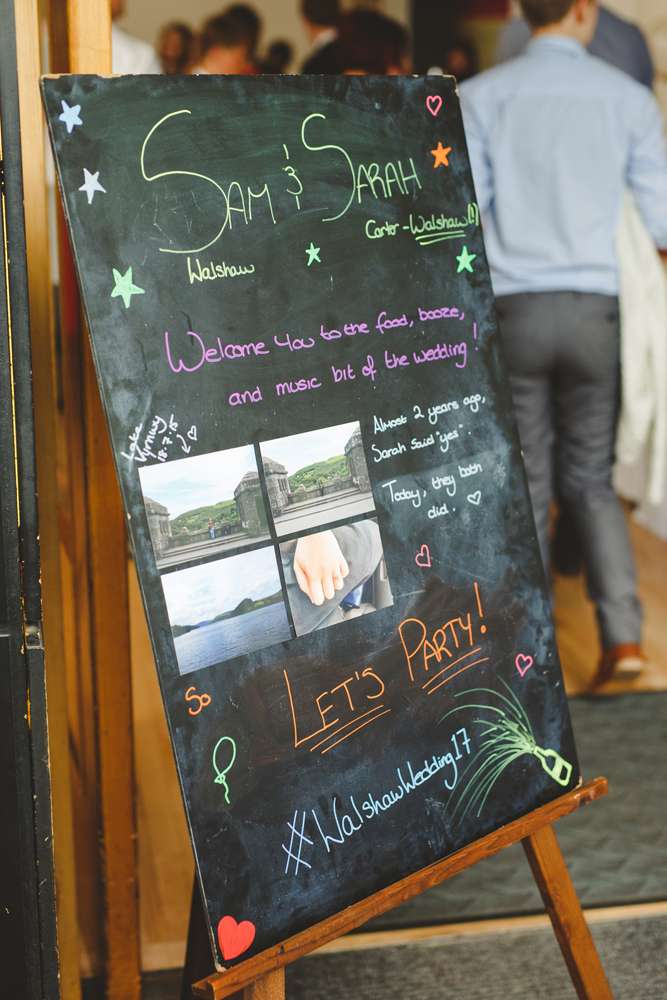 SAM & SARAH
Walshaw
Carter-Walshaw(!)
Welcome You to the food, booze,
and music bit of the wedding!
Lake
Vyrnwy
18.7.15
Almost 2 years ago,
Sarah said "yes".
Today, they both
did.
So
LET'S PARTY!
#WalshawWedding17